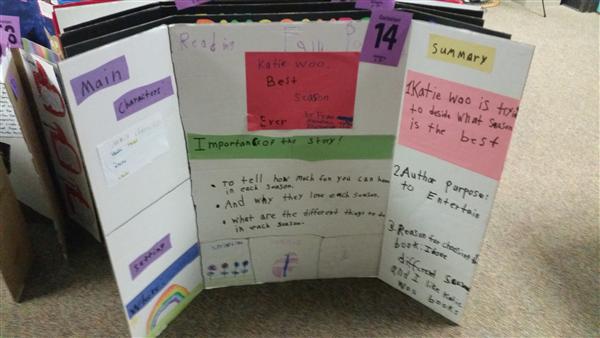 Main
Characters
Setting
Reading Fair
14
Katie Woo.
Best
Season
Ever
by Fran
Importance of the story!
• To tell how much fun you can have
in each season.
• And why they love each season.
• what are the different things to do
in each season.
Summary
1. Katie Woo is
to deside what season
is the best
2. Author purpose:
to Entertain
3. Reason for choosing
book. I love
different seasons
and I like Katie
Woo books